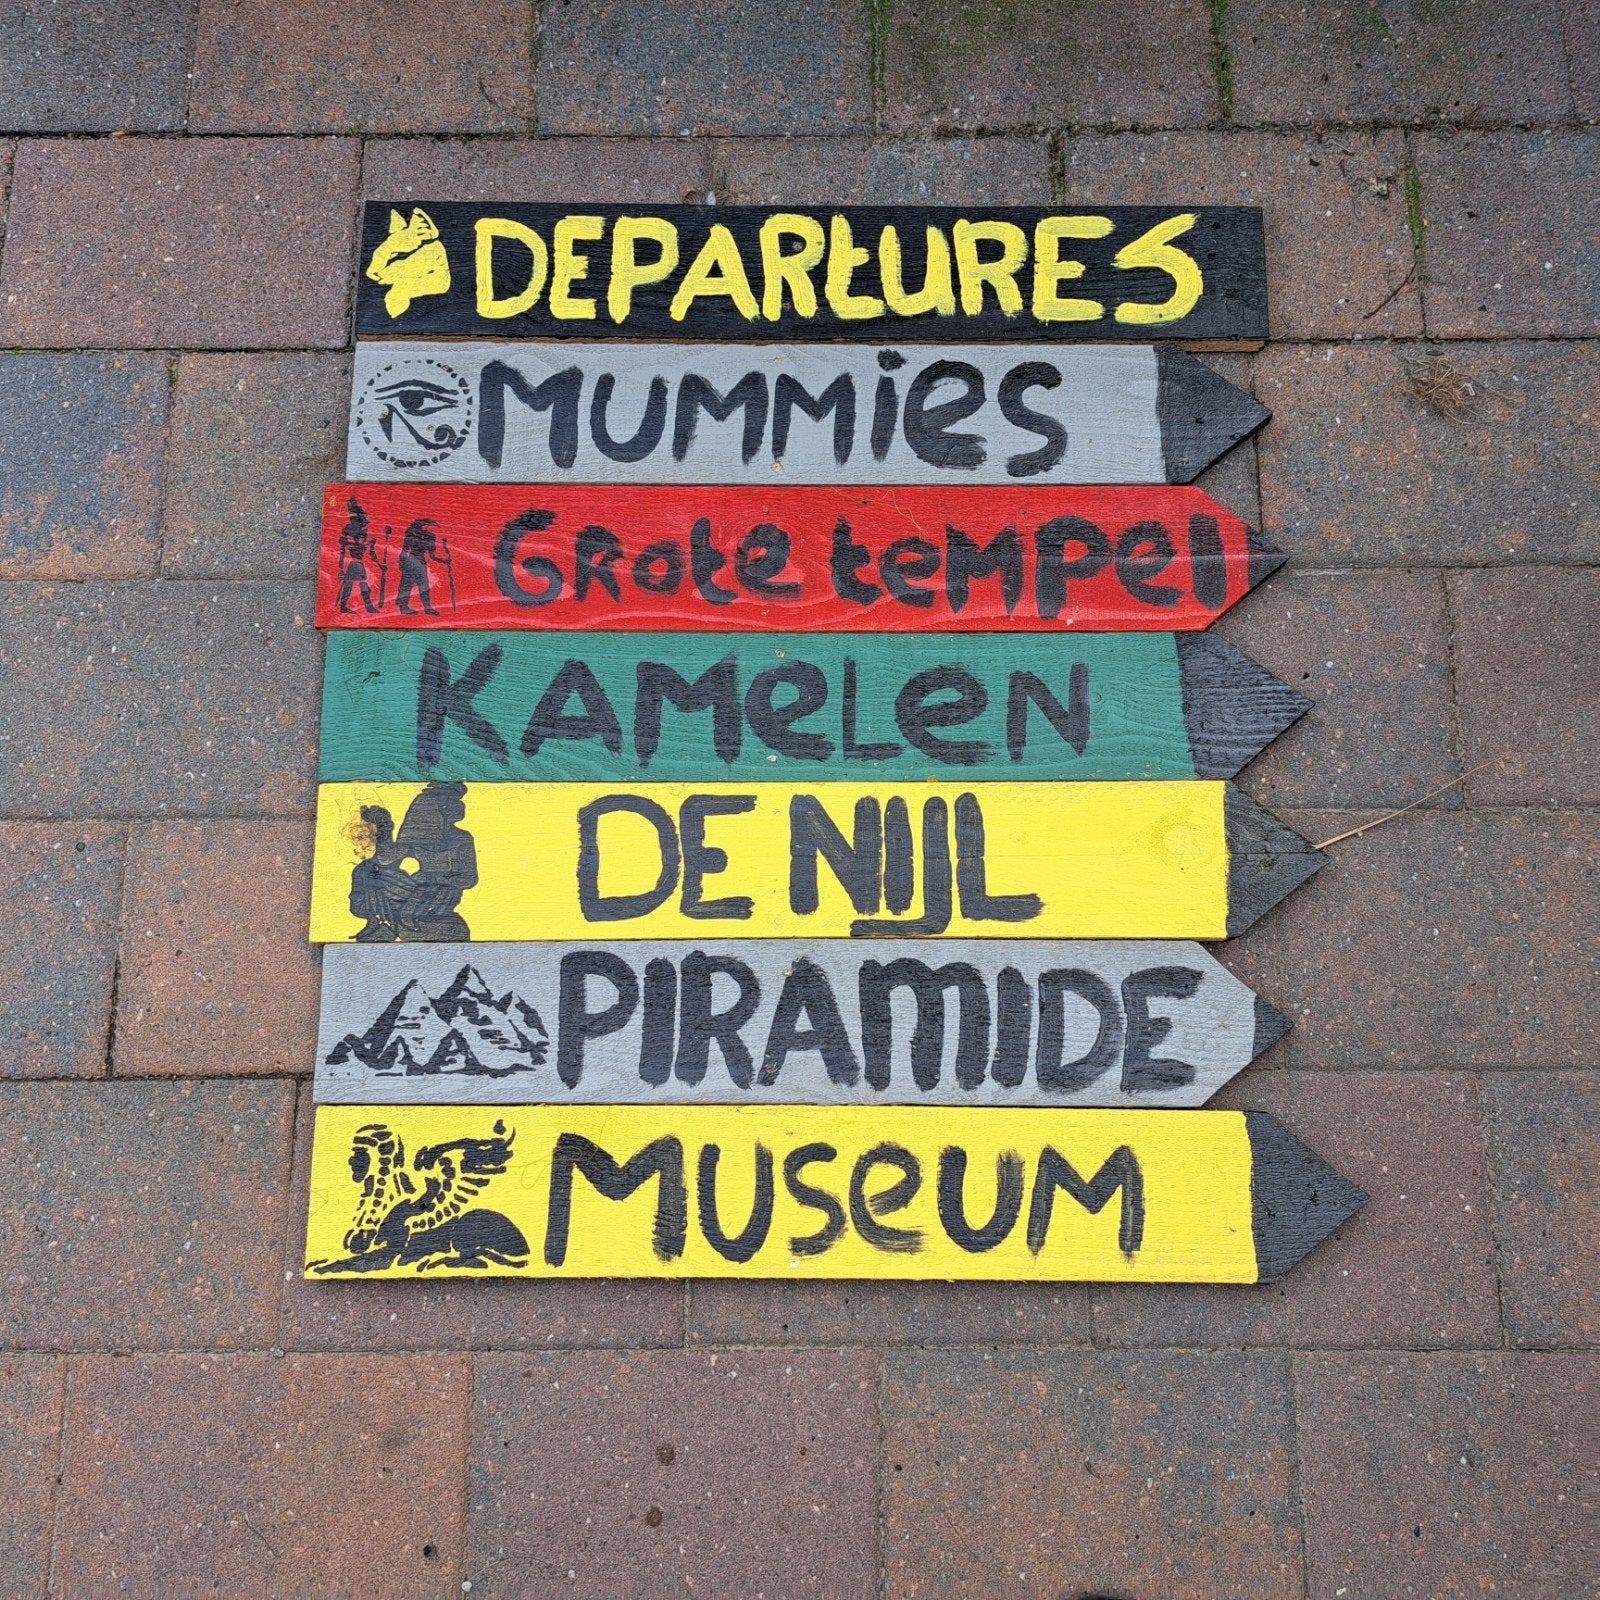 DEPARTURES
MUMMiES
Grote tempel
KAMeLeN
DE NIJL
PIRAMIDE
MUSeUM